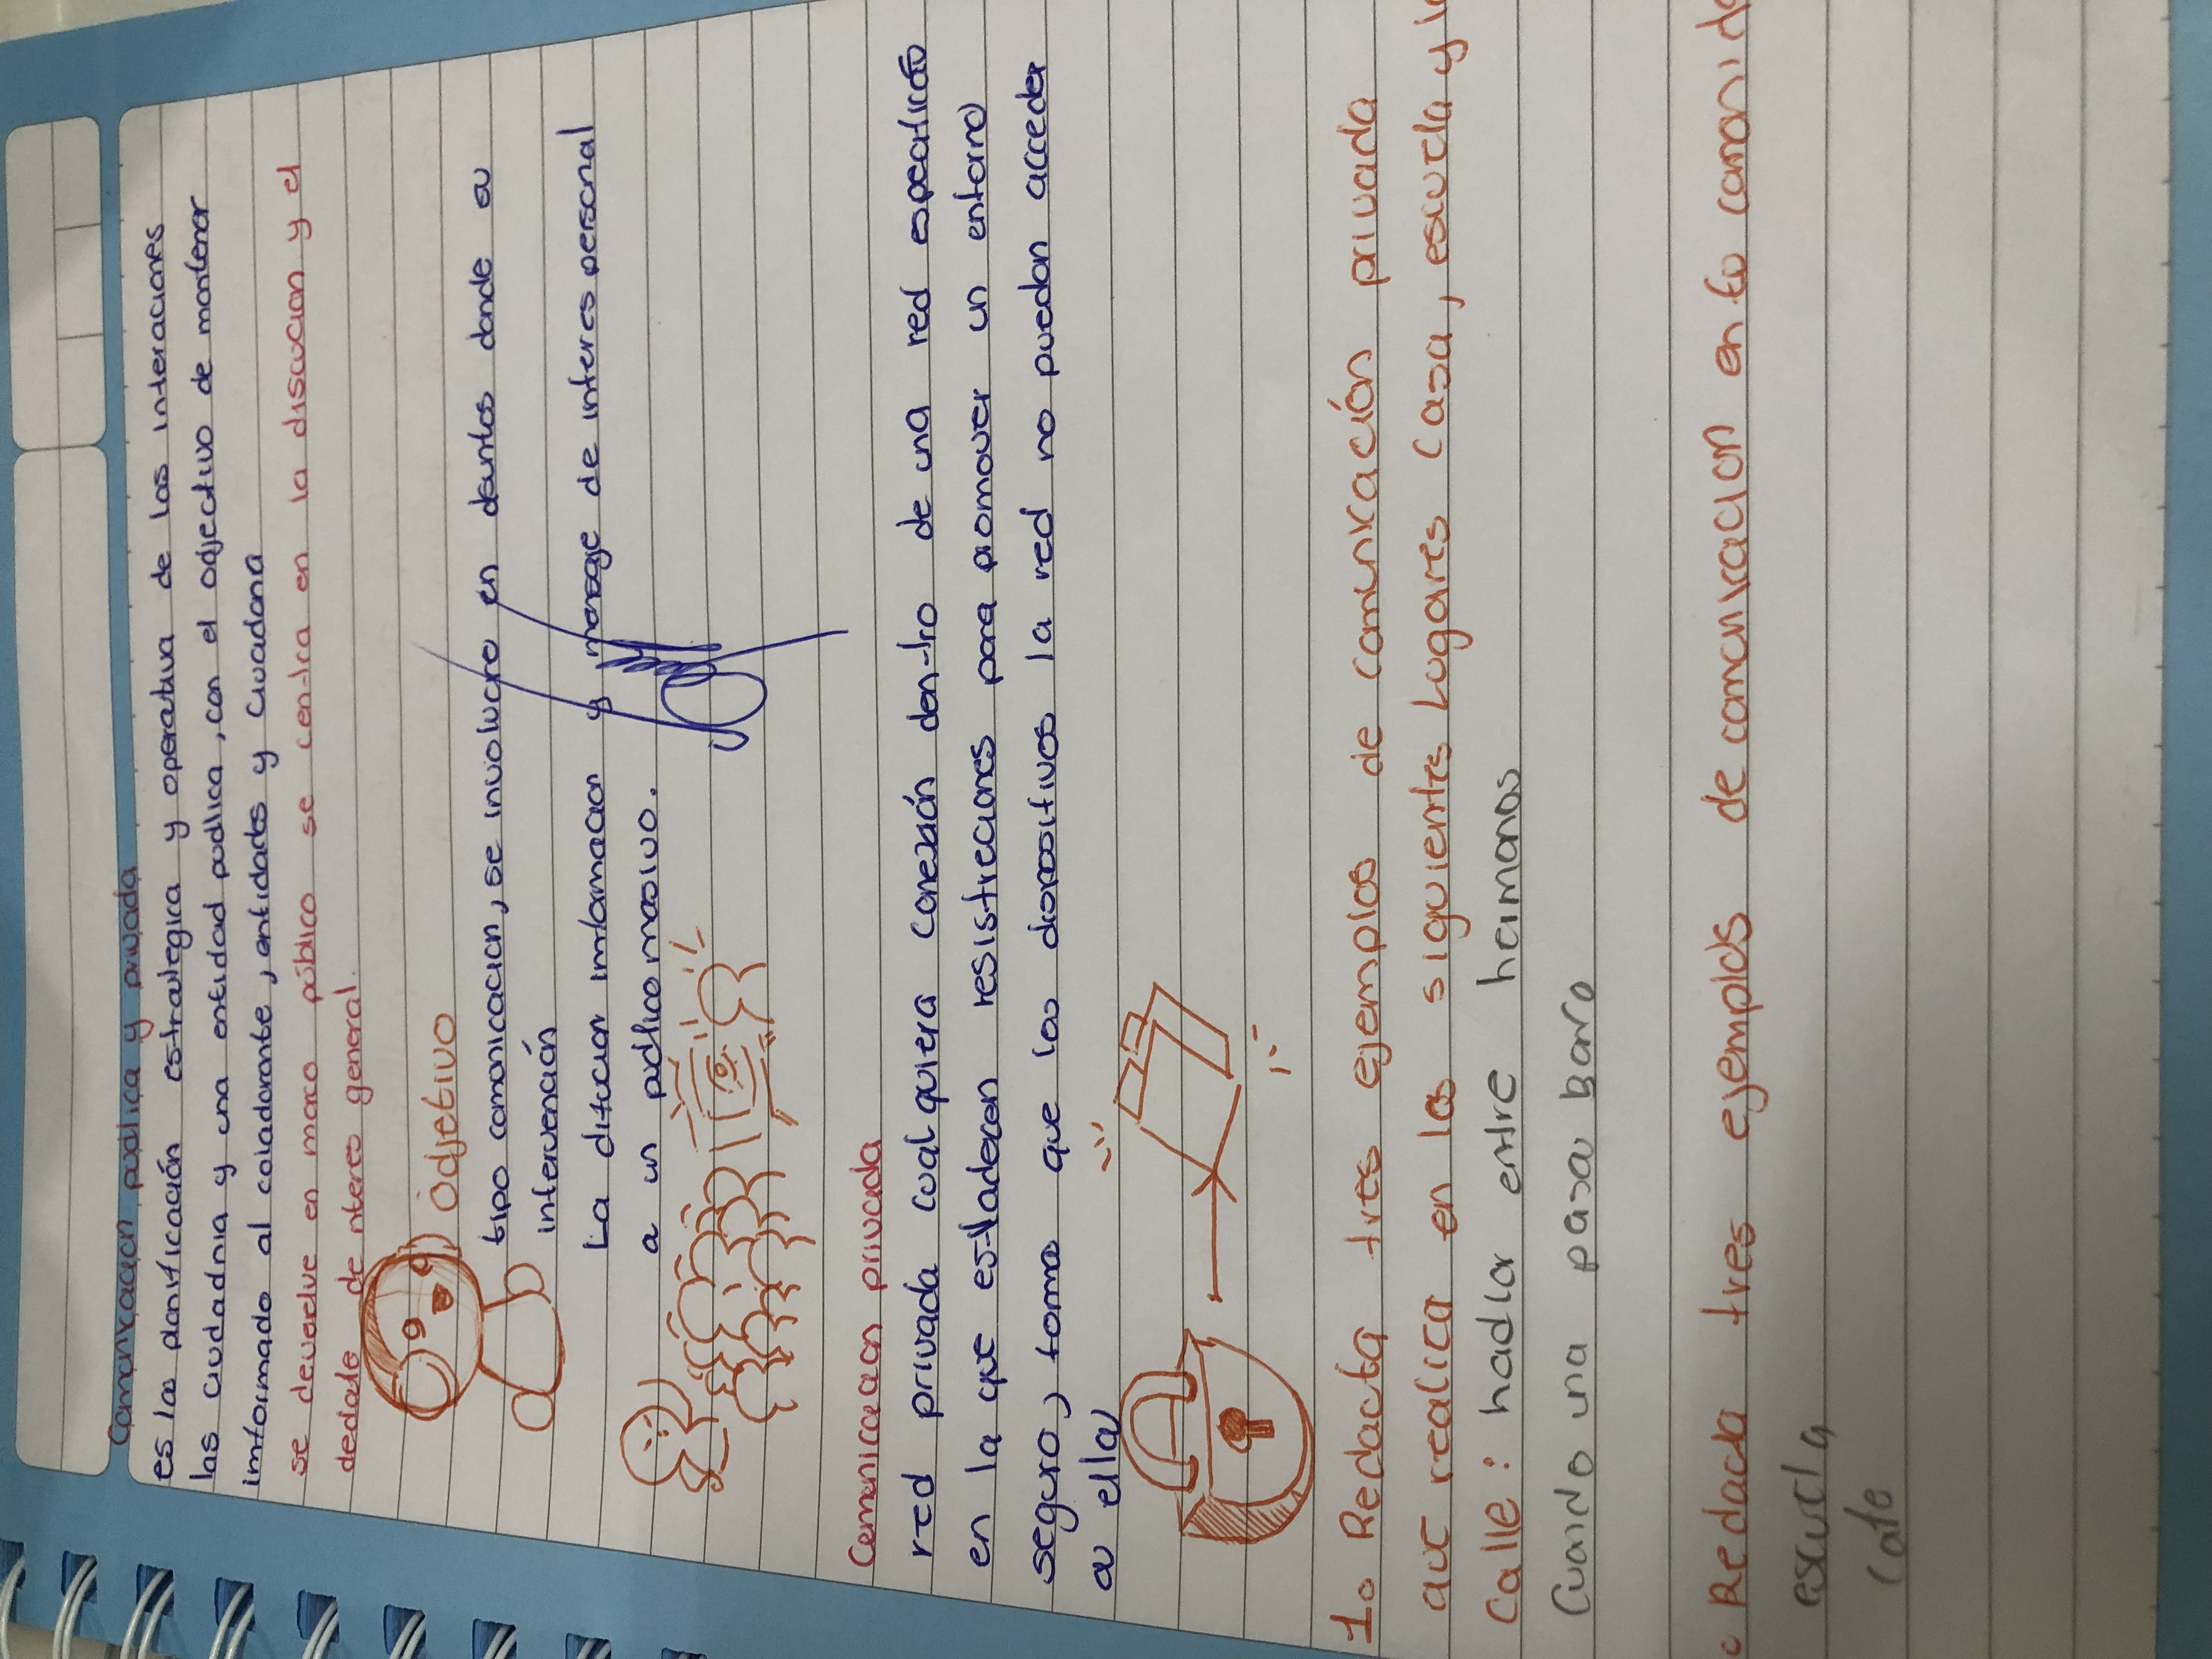 Comonicacion publica y privada
es la planificación estrategica y operativa de las interaciones
las ciudadnia y una entidad publica, con el odjectivo de mantener
informado al colaborante, entidades y ciudadana
se devuelve en marco público se centra en la discucion y el
dedate de nteres general.
Odjetivo
tipo comonicacion, se involucre en deuntos donde su
intervención
La difucion imformacion y mensage de interes personal
a un publico masivo.
Comonicacion privada
red privada cual quiera conexión dentro de una red especifico
en la que estladecen resistreciones para promover un entorno
seguro, forma que los dispositivos la red no puedan acceder
a ella
1. Redacta tres ejemplos de comunicación privada
que realica en los siguientes Lugares casa, escuela y
Calle: hadlar entre hermanos
Cuando una pasa Baro
Redacta tres ejemplos de comonicacion en to comonida
escuela
Cafe